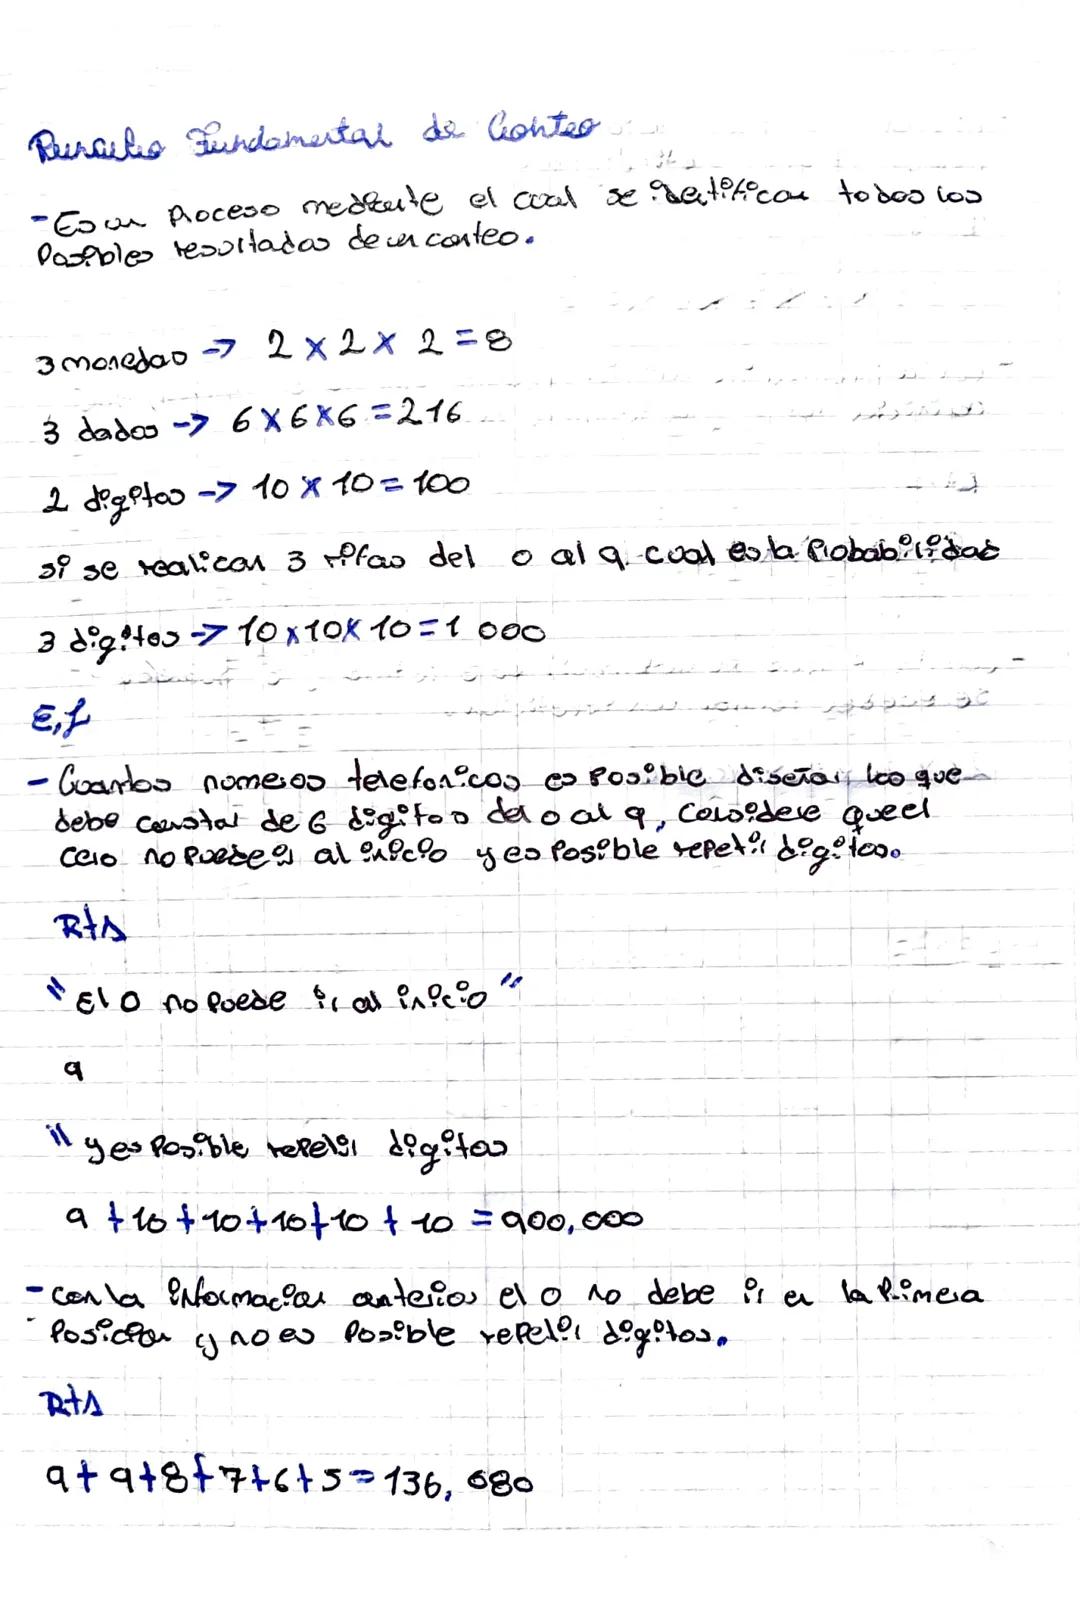 Principio Fundamental de Conteo
- Es un Proceso mediante el cual se identifican todos los
Posibles resultados de un conteo.
3 monedas -> 2 x 2 x 2 = 8
3 dados -> 6 x 6 x 6 = 216
2 digitos -> 10 x 10 = 100
si se realican 3 rifas del 0 al 9 cual es la Probabilidad
3 digitos -> 10 x 10 x 10 = 1 000
EJ
- Cuantos numeros telefonicos es Posible diseñar los que
debe constar de 6 digitos del 0 al 9, Considere que el
cero no Puede ir al inicio y es Posible repetir digitos.
Rta
"El 0 no Puede ir al inicio"
9
"y es Posible repetir digitos
9 + 10 + 10 + 10 + 10 + 10 = 900,000
- con la informacion anterior el 0 no debe ir en la Primera
Posicion y no es Posible repetir digitos.
Rta
9 + 9 + 8 + 7 + 6 + 5 = 136,080